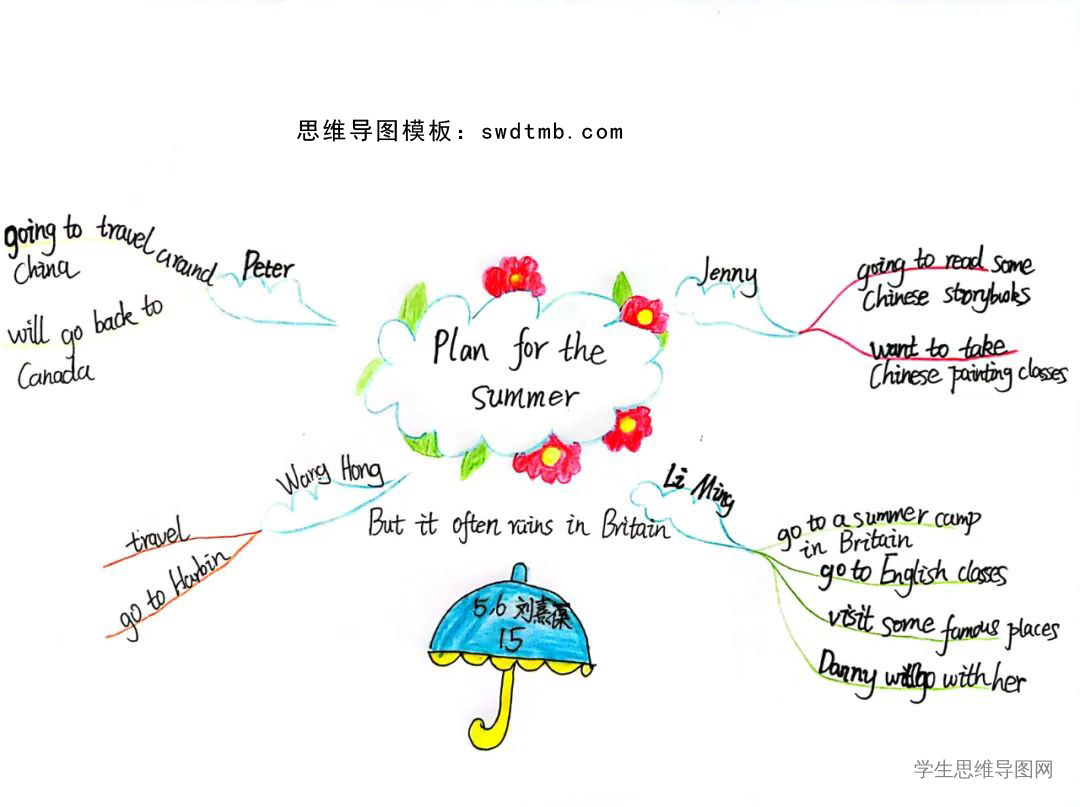 思维导图模板：swdtmb.com
going to travel around
China
Peter
will go back to
Canada
Plan for the
summer
Jenny
going to read some
Chinese storybooks
want to take
Chinese painting classes
Wang Hong
travel
go to Harbin
But it often rains in Britain
Li Ming
go to a summer camp
in Britain
go to English classes
visit some famous places
Danny will go with her
5.6 刘熹葆
15
学生思维导图网